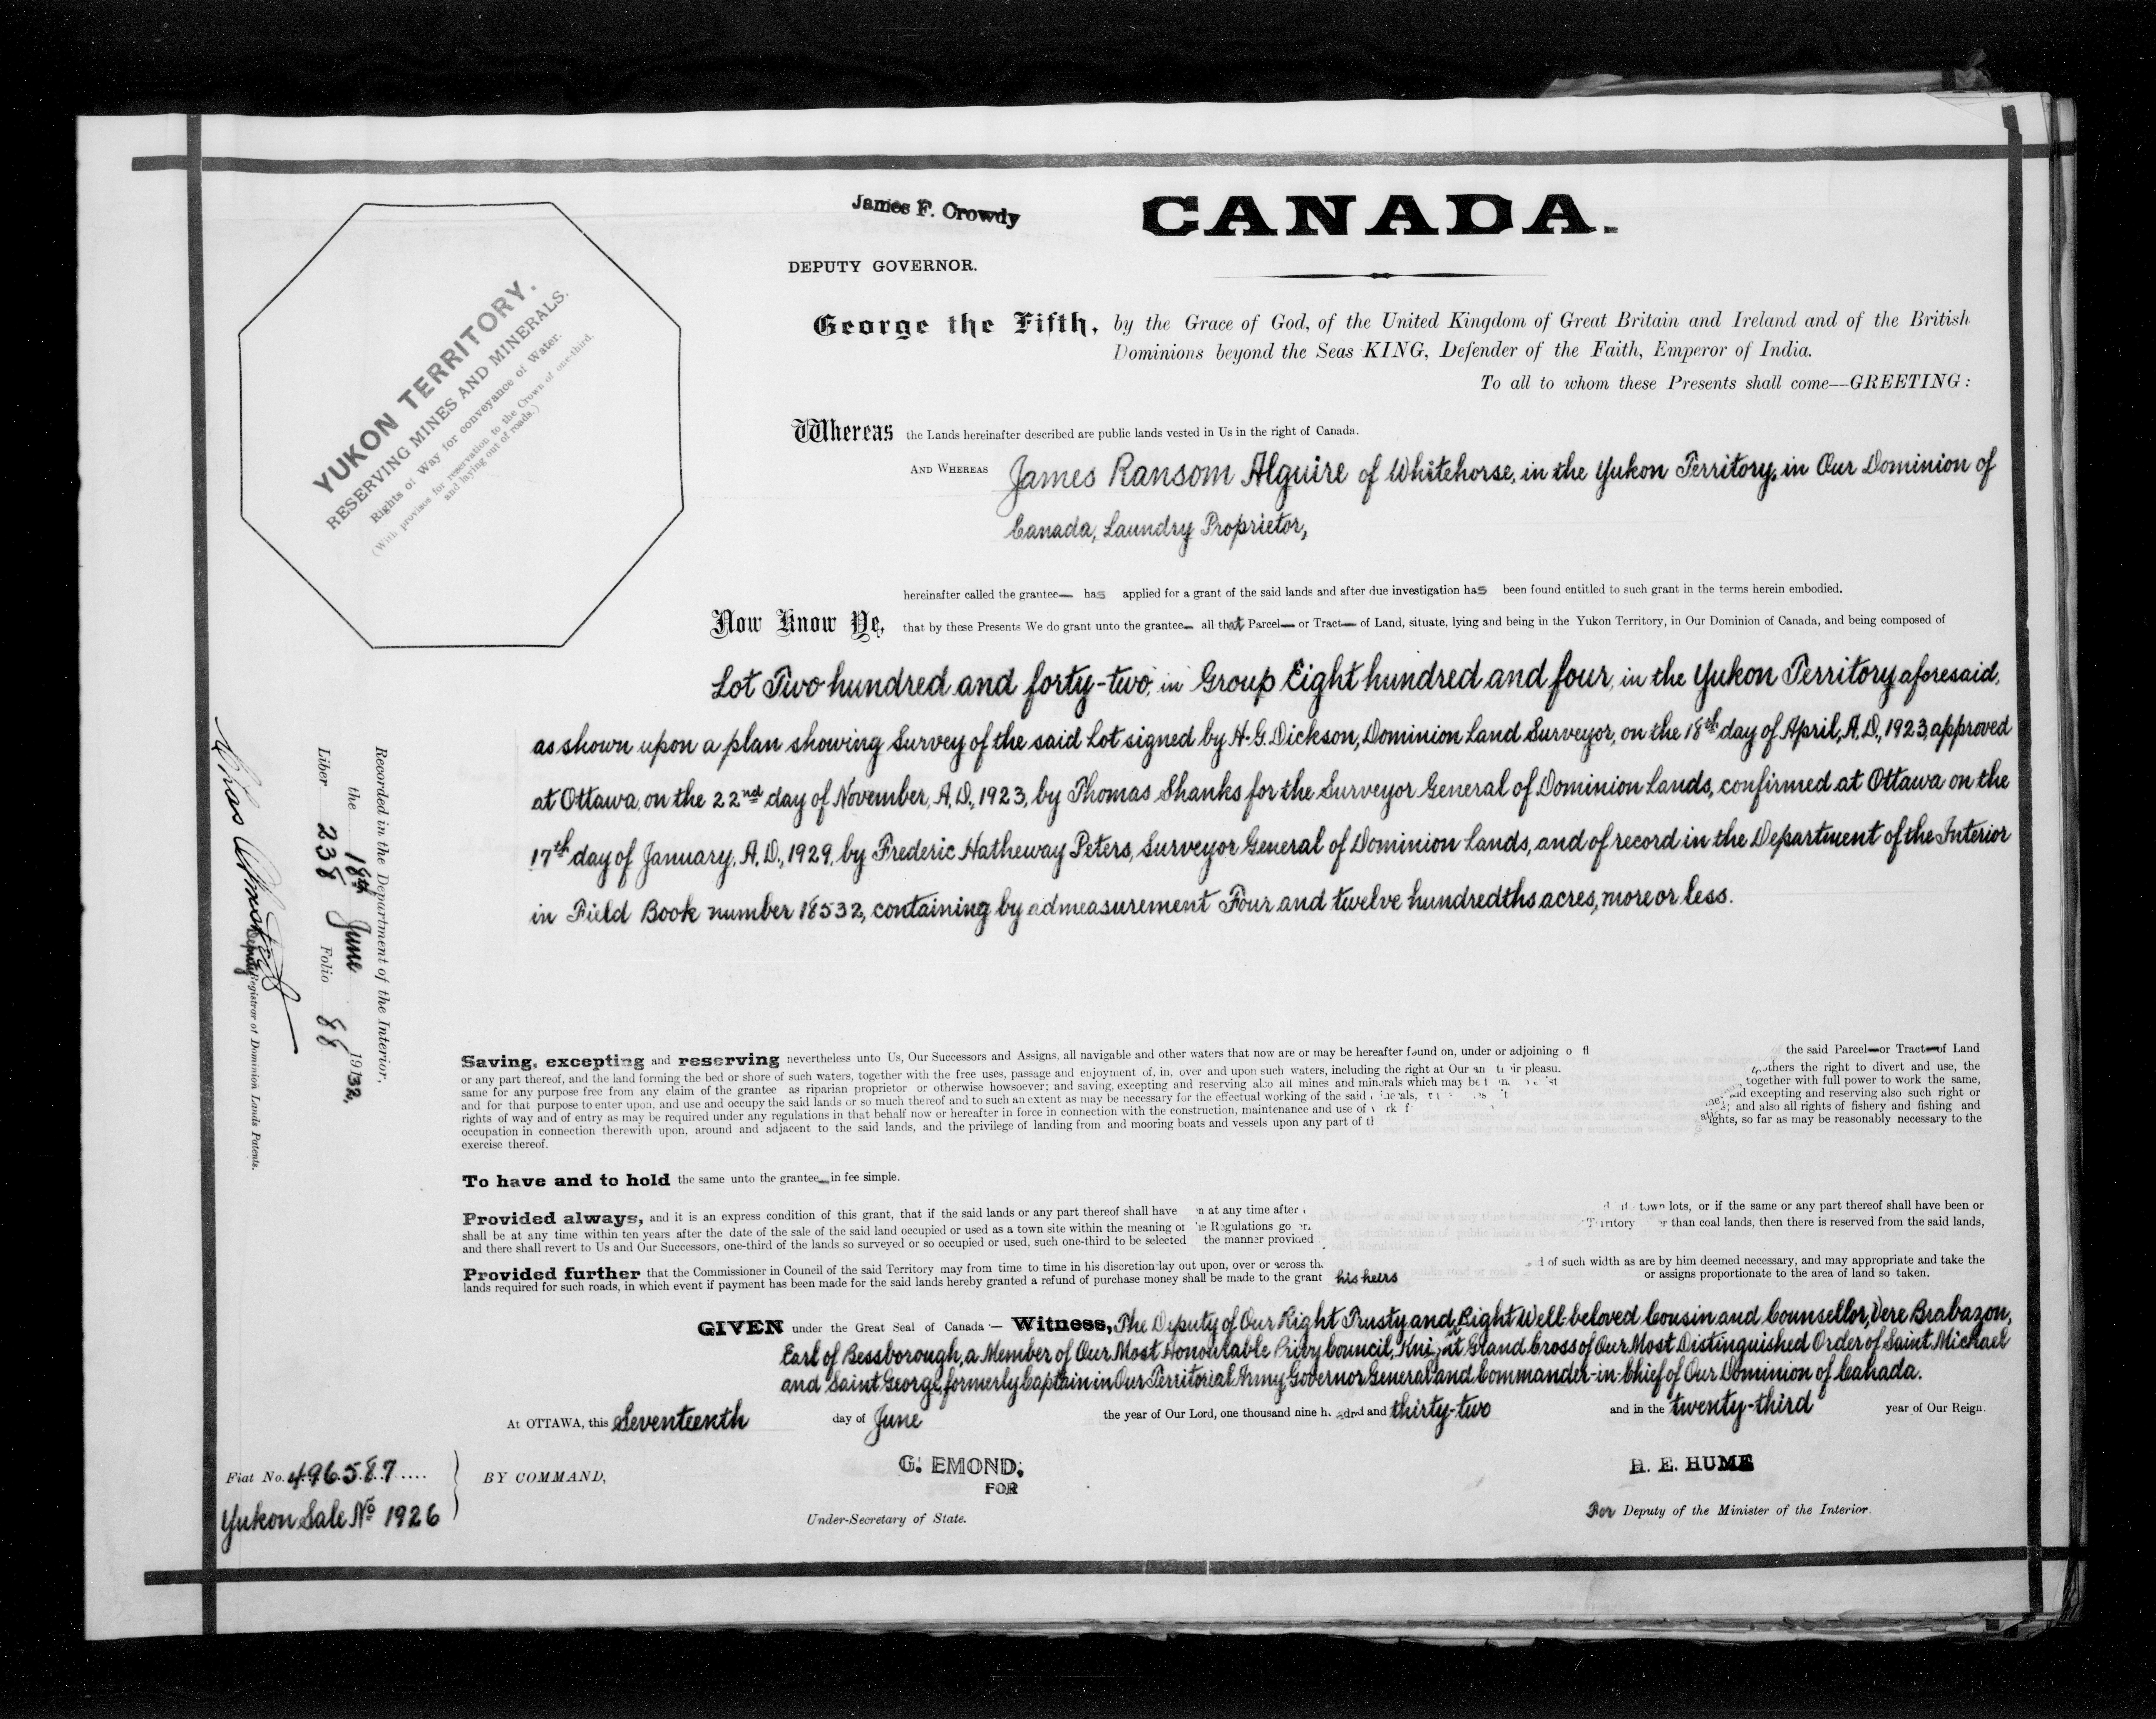 James F. Crowdy
CANADA.
DEPUTY GOVERNOR.
YUKON TERRITORY.
RESERVING MINES AND MINERALS.
Rights of Way for conveyance of Water.
(With provisoes for reservation to the Crown of one-third.
and laying out of roads.)
George the Fifth, by the Grace of God, of the United Kingdom of Great Britain and Ireland and of the British
Dominions beyond the Seas KING, Defender of the Faith, Emperor of India.
To all to whom these Presents shall come—GREETING:
Whereas the Lands hereinafter described are public lands vested in Us in the right of Canada.
AND WHEREAS James Ransom Alguire of Whitehorse, in the Yukon Territory, in Our Dominion of
Canada, Laundry Proprietor,
hereinafter called the grantee— has applied for a grant of the said lands and after due investigation has been found entitled to such grant in the terms herein embodied.
Now Know Ye, that by these Presents We do grant unto the grantee— all that Parcel— or Tract— of Land, situate, lying and being in the Yukon Territory, in Our Dominion of Canada, and being composed of
Lot Two hundred and forty-two, in Group Eight hundred and four, in the Yukon Territory aforesaid,
as shown upon a plan showing Survey of the said Lot signed by H. G. Dickson, Dominion Land Surveyor, on the 18th day of April, A. D., 1923, approved
at Ottawa, on the 22nd day of November, A. D., 1923, by Thomas Shanks for the Surveyor General of Dominion Lands, confirmed at Ottawa on the
17th day of January, A. D., 1929, by Frederic Hatheway Peters, Surveyor General of Dominion Lands, and of record in the Department of the Interior
in Field Book number 18532, containing by admeasurement Four and twelve hundredths acres, more or less.
Recorded in the Department of the Interior,
the 18th June 1932,
Liber 238 Folio 88
Chas
Deputy Registrar of Dominion Lands Patents.
Saving, excepting and reserving nevertheless unto Us, Our Successors and Assigns, all navigable and other waters that now are or may be hereafter found on, under or adjoining the said Parcel—or Tract—of Land
or any part thereof, and the land forming the bed or shore of such waters, together with the free uses, passage and enjoyment of, in, over and upon such waters, including the right at Our others the right to divert and use, the
same for any purpose free from any claim of the grantee as riparian proprietor or otherwise howsoever; and saving, excepting and reserving also all mines and minerals which may be together with full power to work the same,
and for that purpose to enter upon, and use and occupy the said lands or so much thereof and to such an extent as may be necessary for the effectual working of the said and excepting and reserving also such right or
rights of way and of entry as may be required under any regulations in that behalf now or hereafter in force in connection with the construction, maintenance and use of ; and also all rights of fishery and fishing and
occupation in connection therewith upon, around and adjacent to the said lands, and the privilege of landing from and mooring boats and vessels upon any part of rights, so far as may be reasonably necessary to the
exercise thereof.
To have and to hold the same unto the grantee—in fee simple.
Provided always, and it is an express condition of this grant, that if the said lands or any part thereof shall have at any time after town lots, or if the same or any part thereof shall have been or
shall be at any time within ten years after the date of the sale of the said land occupied or used as a town site within the meaning of the Regulations Territory than coal lands, then there is reserved from the said lands,
and there shall revert to Us and Our Successors, one-third of the lands so surveyed or so occupied or used, such one-third to be selected the manner provided
Provided further that the Commissioner in Council of the said Territory may from time to time in his discretion lay out upon, over or across of such width as are by him deemed necessary, and may appropriate and take the
lands required for such roads, in which event if payment has been made for the said lands hereby granted a refund of purchase money shall be made to the grant his heirs or assigns proportionate to the area of land so taken.
GIVEN under the Great Seal of Canada:— Witness, The Deputy of Our Right Trusty and Right Well-beloved Cousin and Counsellor, Vere Brabazon,
Earl of Bessborough, a Member of Our Most Honourable Privy Council, Knight Grand Cross of Our Most Distinguished Order of Saint Michael
and Saint George, formerly Captain in Our Territorial Army, Governor General and Commander-in-Chief of Our Dominion of Canada.
At OTTAWA, this Seventeenth day of June the year of Our Lord, one thousand nine hundred and thirty-two and in the twenty-third year of Our Reign.
Fiat No. 496587
Yukon Sale No 1926
BY COMMAND,
G. EMOND,
FOR
Under-Secretary of State.
H. E. HUME
For Deputy of the Minister of the Interior.